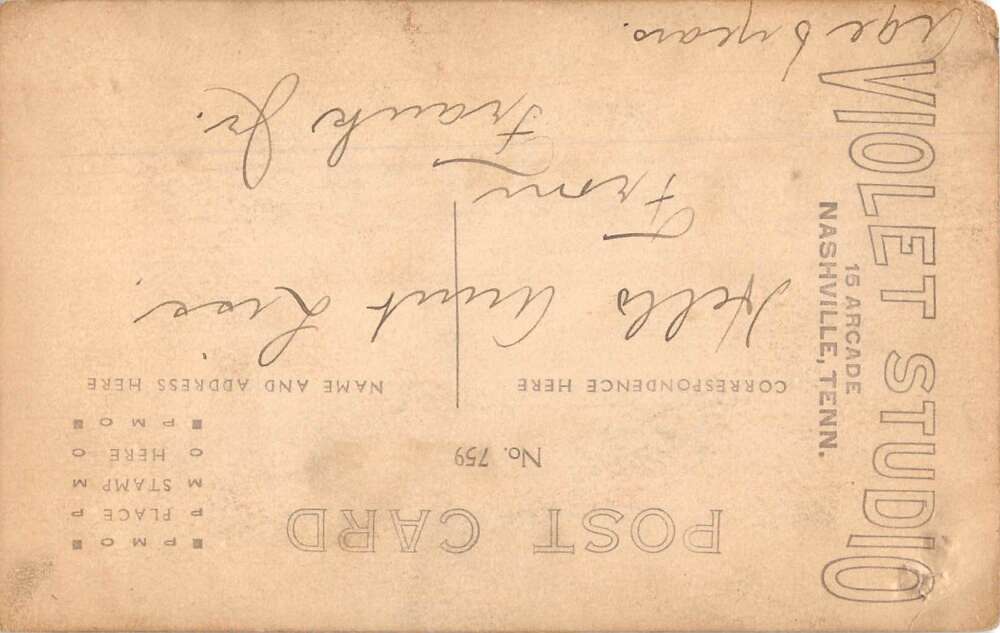 POST CARD
No. 759
CORRESPONDENCE HERE
NAME AND ADDRESS HERE
P M C
P PLACE P
M STAMP M
O HERE O
P M C
Hello Aunt
From
Frank Jr.
Age 5 years.
VIOLET STUDIO
15 ARCADE
NASHVILLE, TENN.